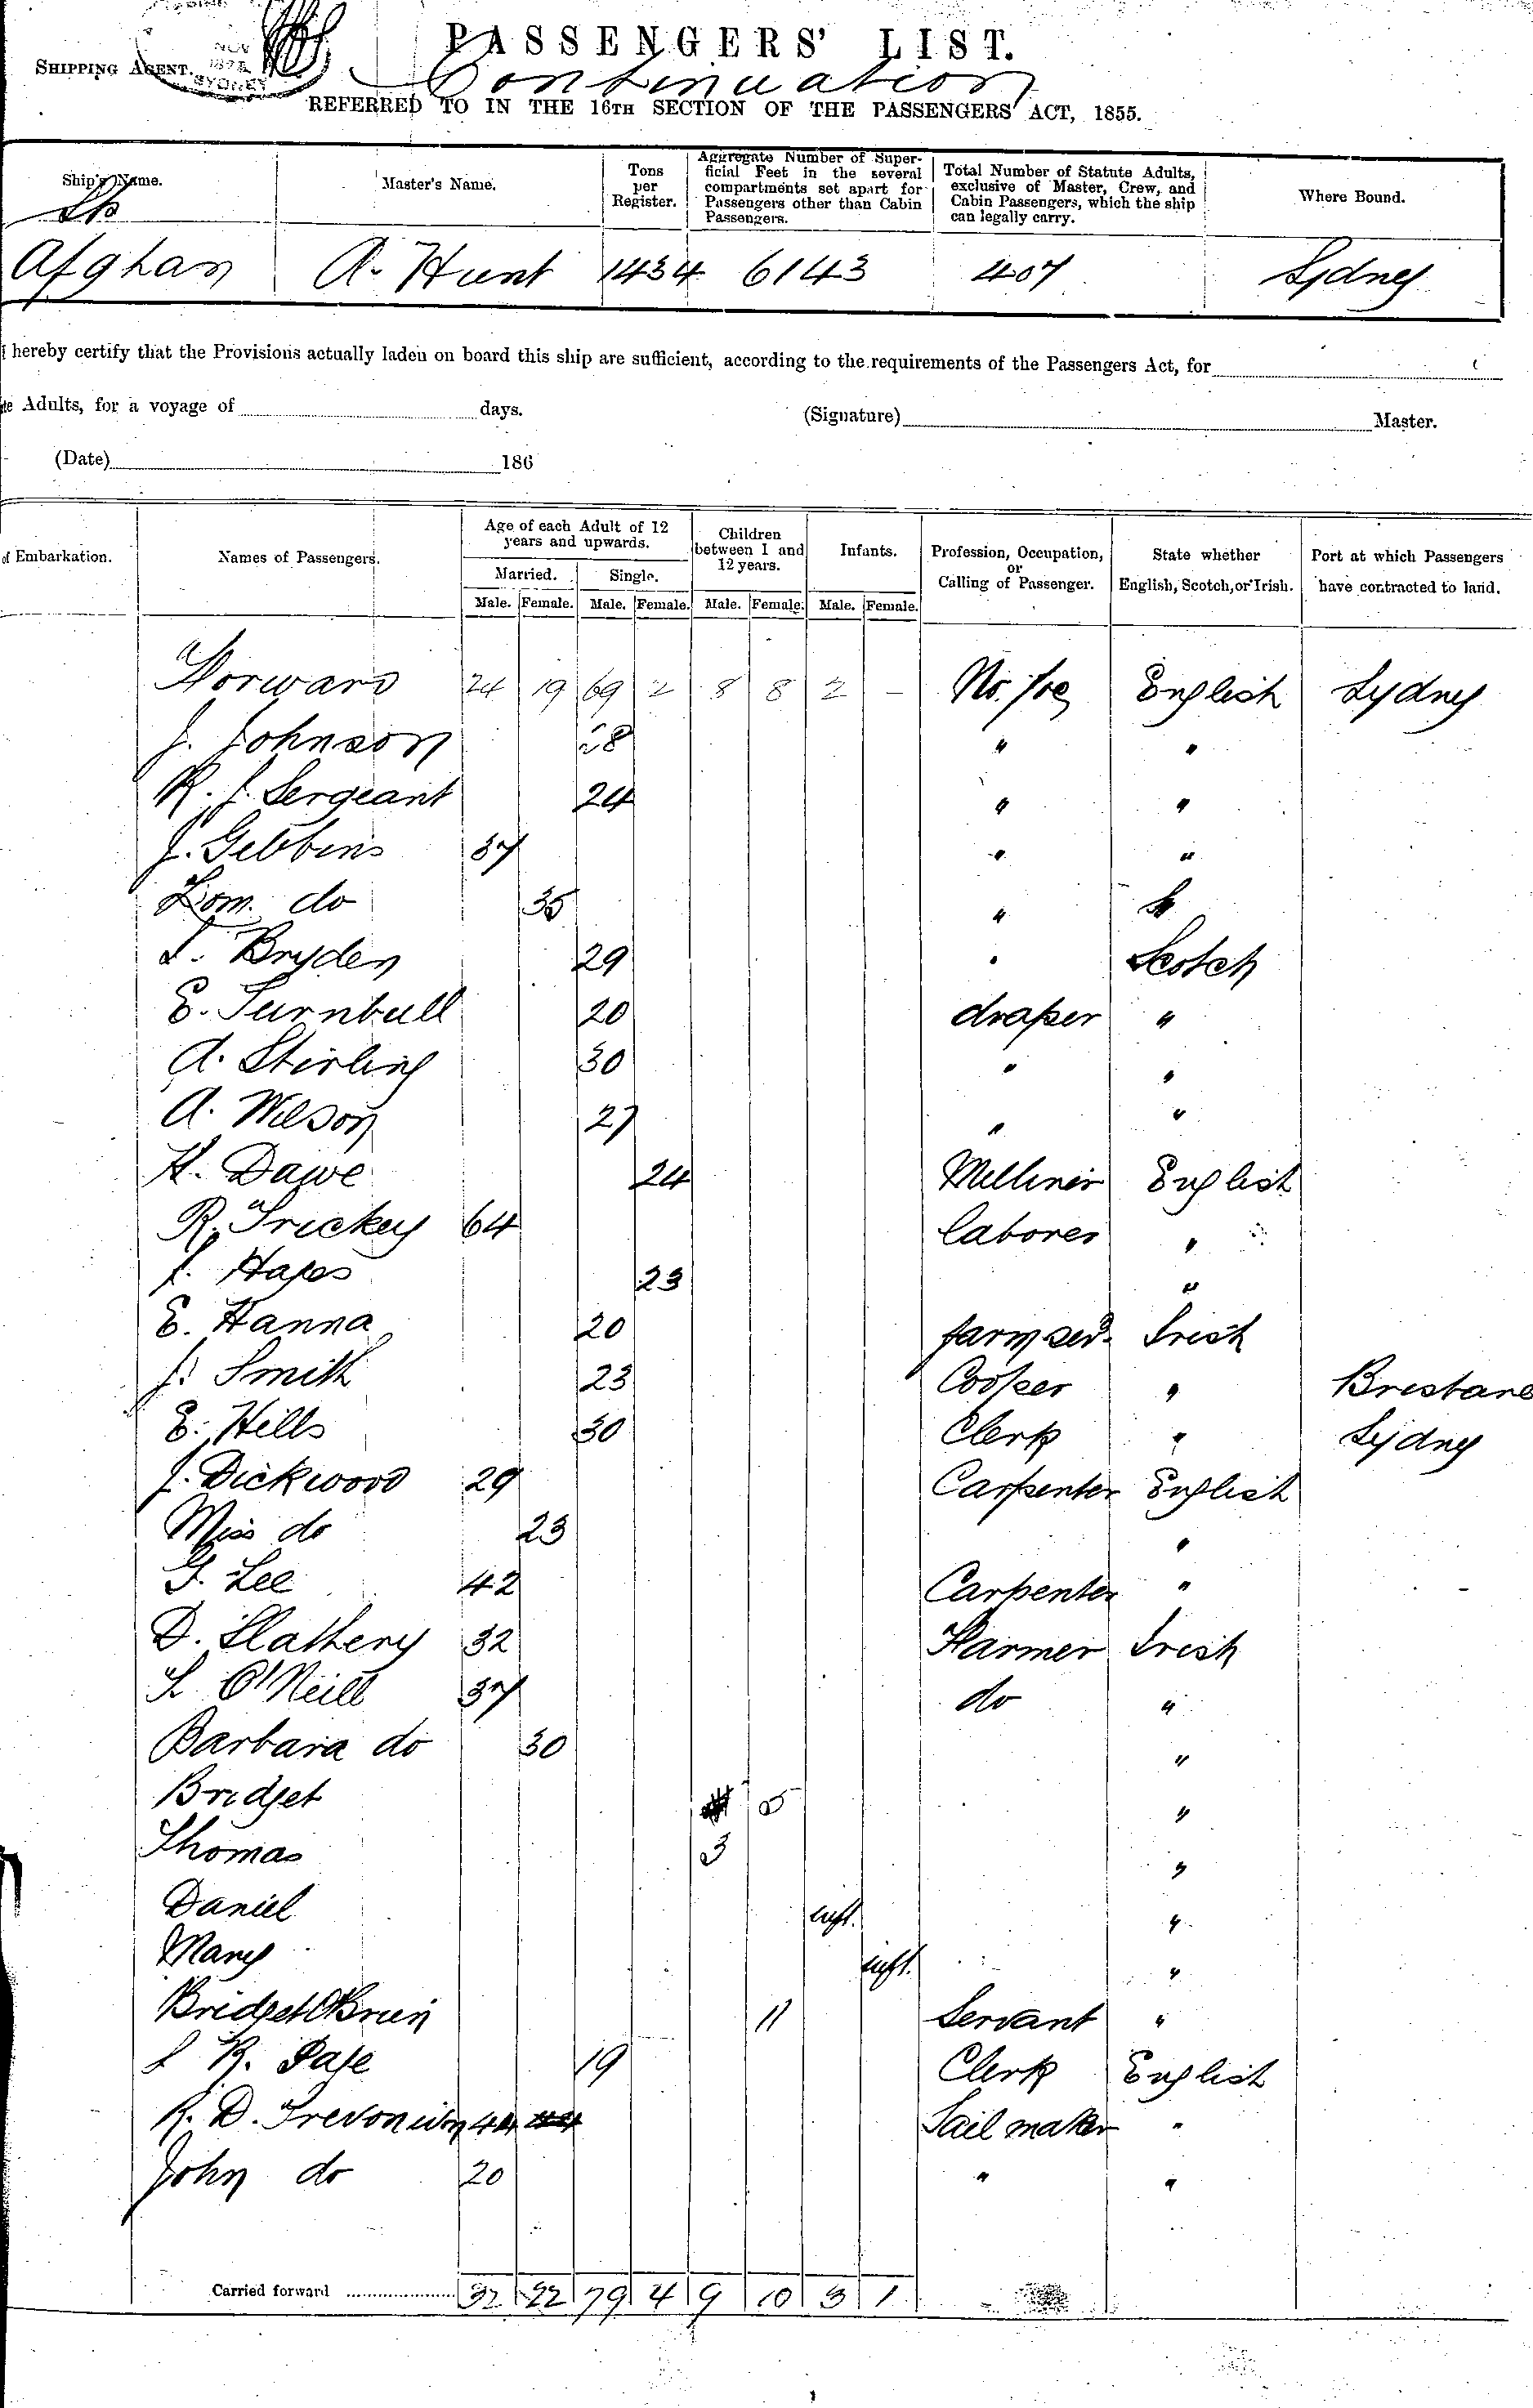 PASSENGERS' LIST.
SHIPPING AGENT.
SYDNEY
Continuation
REFERRED TO IN THE 16TH SECTION OF THE PASSENGERS' ACT, 1855.
Ship's Name. Master's Name. Tons per Register. Aggregate Number of Superficial Feet in the several compartments set apart for Passengers other than Cabin Passengers. Total Number of Statute Adults, exclusive of Master, Crew, and Cabin Passengers, which the ship can legally carry. Where Bound.
Afghan A. Hunt 1434 6143 407 Sydney
I hereby certify that the Provisions actually laden on board this ship are sufficient, according to the requirements of the Passengers Act, for
te Adults, for a voyage of days. (Signature) Master.
(Date) 186
of Embarkation. Names of Passengers. Age of each Adult of 12 years and upwards. Married. Single. Children between 1 and 12 years. Infants. Profession, Occupation, or Calling of Passenger. State whether English, Scotch, or Irish. Port at which Passengers have contracted to land.
Male. Female. Male. Female. Male. Female. Male. Female.
Forward 24 19 69 2 8 8 2 - English Sydney
J. Johnson 28 " "
R. J. Sergeant 24 " "
J. Gibbins 37 " "
do 35 "
T. Bryden 29 " Scotch
E. Turnbull 20 draper "
A. Stirling 30 " "
A. Wilson 27 " "
H. Dawe 24 Milliner English
R. Trickey 64 laborer "
J. 23 "
E. Hanna 20 farm ser. Irish
J. Smith 23 Cooper " Brisbane
E. Hills 30 Clerk " Sydney
J. Dickwood 29 Carpenter English
do 23 "
Lee 42 Carpenter "
D. Slattery 32 Farmer Irish
O'Neill 37 do "
Barbara do 30 "
Bridget 5 "
Thomas 3 "
Daniel inft. "
Mary inft. "
Bridget O'Brien 11 Servant "
J R. Page 19 Clerk English
R. D. 44 Sail maker "
John do 20 " "
Carried forward 32 22 79 4 9 10 3 1